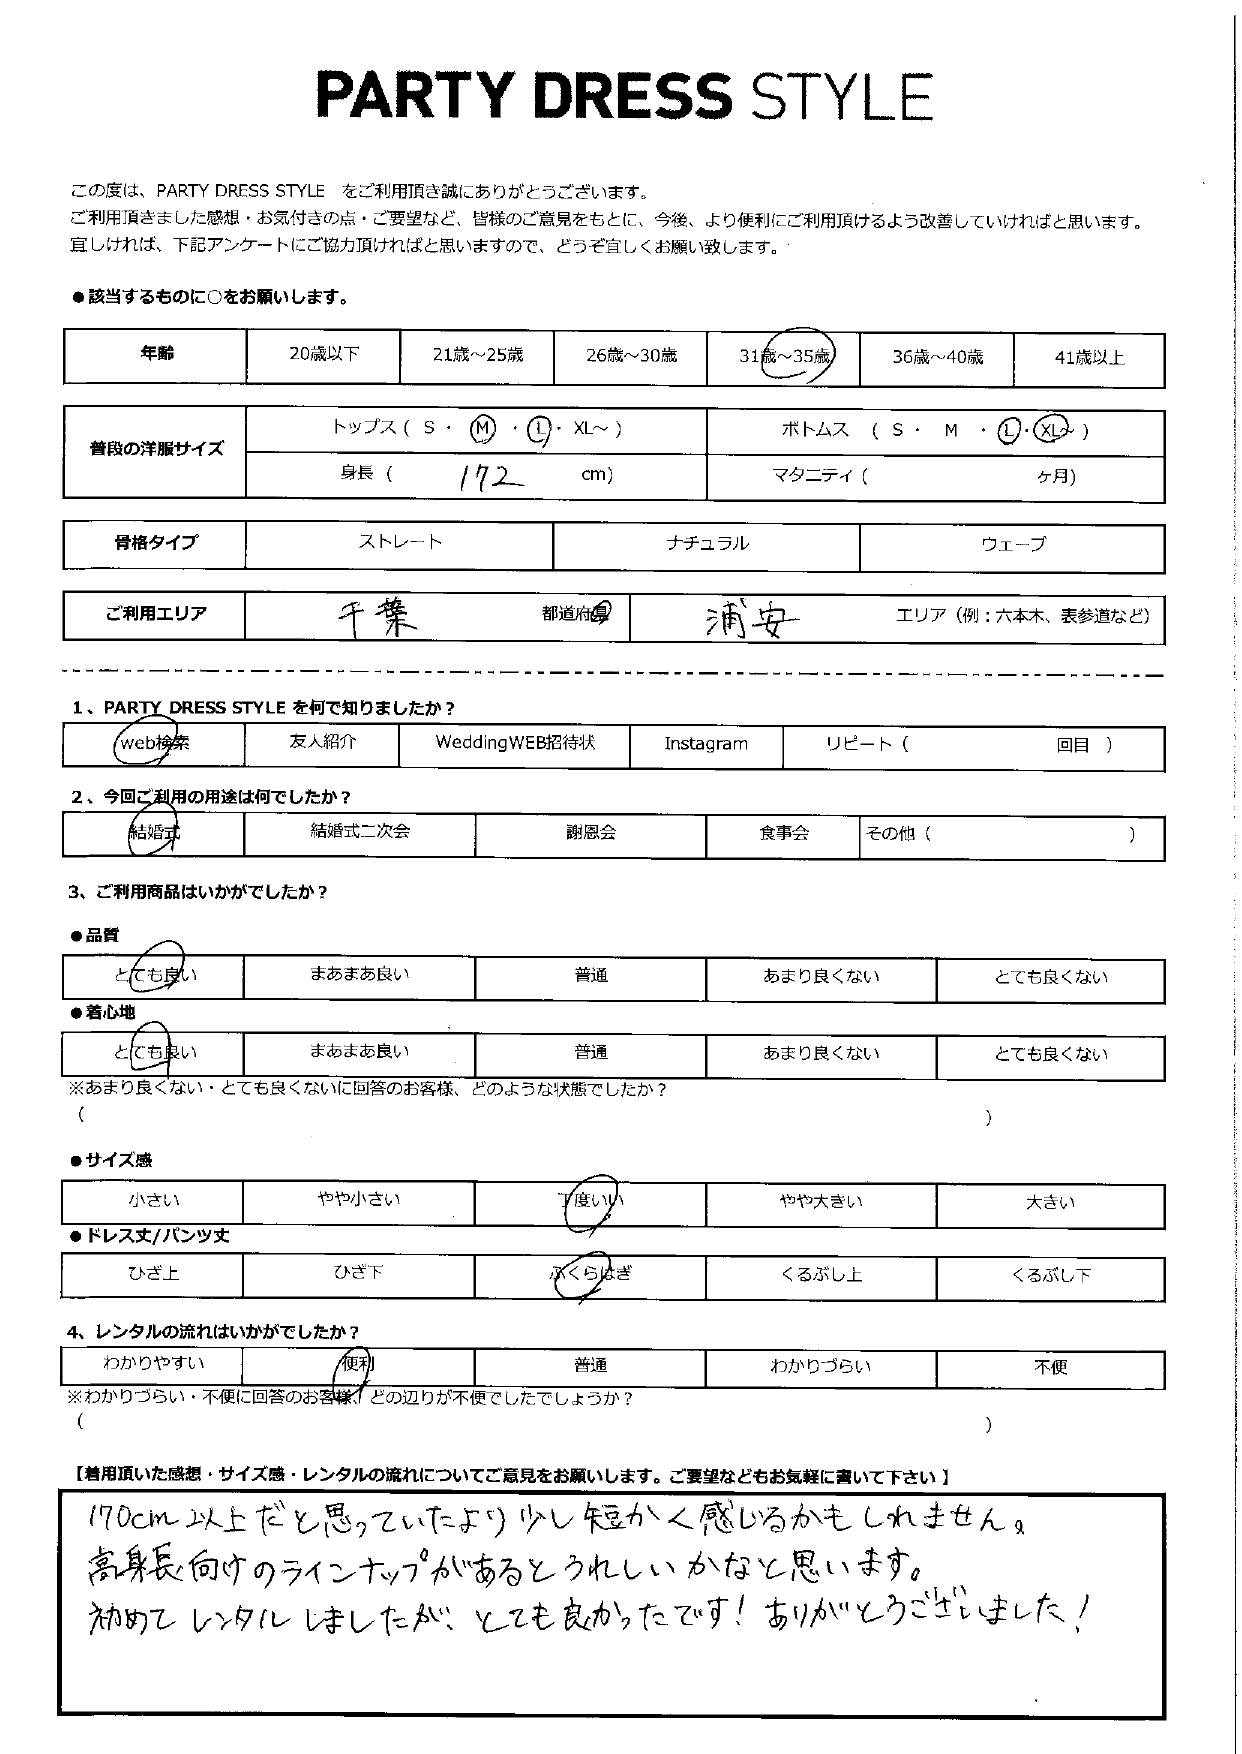 PARTY DRESS STYLE
この度は、PARTY DRESS STYLE をご利用頂き誠にありがとうございます。
ご利用頂きました感想・お気付きの点・ご要望など、皆様のご意見をもとに、今後、より便利にご利用頂けるよう改善していければと思います。
宜しければ、下記アンケートにご協力頂ければと思いますので、どうぞ宜しくお願い致します。
●該当するものに○をお願いします。
年齢 20歳以下 21歳～25歳 26歳～30歳 31歳～35歳 36歳～40歳 41歳以上
普段の洋服サイズ トップス ( S ・ M ・ L ・ XL～ ) ボトムス ( S ・ M ・ L ・ XL～ )
身長 ( 172 cm) マタニティ ( ヶ月)
骨格タイプ ストレート ナチュラル ウェーブ
ご利用エリア 千葉 都道府県 浦安 エリア (例：六本木、表参道など)
1、PARTY DRESS STYLE を何で知りましたか？
web検索 友人紹介 WeddingWEB招待状 Instagram リピート ( 回目 )
2、今回ご利用の用途は何でしたか？
結婚式 結婚式二次会 謝恩会 食事会 その他 ( )
3、ご利用商品はいかがでしたか？
●品質
とても良い まあまあ良い 普通 あまり良くない とても良くない
●着心地
とても良い まあまあ良い 普通 あまり良くない とても良くない
※あまり良くない・とても良くないに回答のお客様、どのような状態でしたか？
( )
●サイズ感
小さい やや小さい 丁度いい やや大きい 大きい
●ドレス丈/パンツ丈
ひざ上 ひざ下 ふくらはぎ くるぶし上 くるぶし下
4、レンタルの流れはいかがでしたか？
わかりやすい 便利 普通 わかりづらい 不便
※わかりづらい・不便に回答のお客様、どの辺りが不便でしたでしょうか？
( )
【着用頂いた感想・サイズ感・レンタルの流れについてご意見をお願いします。ご要望などもお気軽に書いて下さい】
170cm以上だと思っていたより少し短かく感じるかもしれません。
高身長向けのラインナップがあるとうれしいかなと思います。
初めてレンタルしましたが、とても良かったです！ありがとうございました！